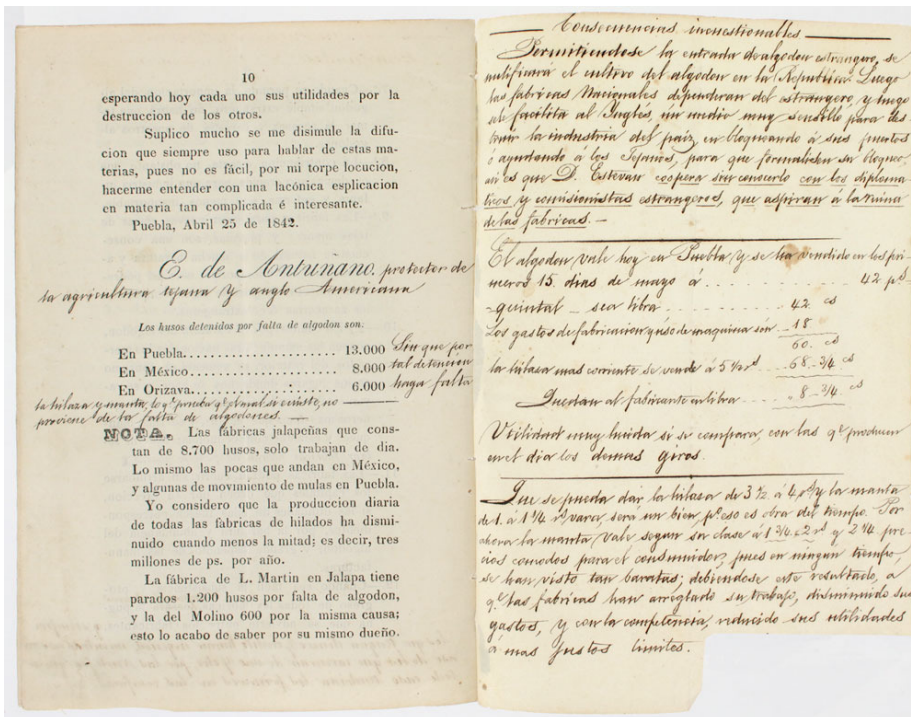 10
esperando hoy cada uno sus utilidades por la
destruccion de los otros.
Suplico mucho se me disimule la difu-
cion que siempre uso para hablar de estas ma-
terias, pues no es fácil, por mi torpe locucion,
hacerme entender con una lacónica esplicacion
en materia tan complicada é interesante.
Puebla, Abril 25 de 1842.
E. de Antuñano. protector de
la agricultura tejana y anglo Americana
Los husos detenidos por falta de algodon son.
En Puebla...................... 13.000 Sin que por
En México...................... 8.000 tal detencion
En Orizava...................... 6.000 haga falta
la hilaza y manta, lo q.e prueba q.e el mal si existe, no
proviene de la falta de algodones.
NOTA. Las fábricas jalapeñas que cons-
tan de 8.700 husos, solo trabajan de dia.
Lo mismo las pocas que andan en México,
y algunas de movimiento de mulas en Puebla.
Yo considero que la produccion diaria
de todas las fabricas de hilados ha dismi-
nuido cuando menos la mitad; es decir, tres
millones de ps. por año.
La fábrica de L. Martin en Jalapa tiene
parados 1.200 husos por falta de algodon,
y la del Molino 600 por la misma causa;
esto lo acabo de saber por su mismo dueño.
Consecuencias incuestionables
Permitiendose la entrada de algodon estrangero, se
nulificará el cultivo del algodon en la Republica. Luego
las fabricas Nacionales dependeran del estrangero, y luego
se facilita al Inglés, un medio muy sensillo para des
truir la industria del pais, en bloqueando á sus puertos
o ayudando á los Tejanos, para que formalisen su bloqueo,
asi es que D. Estevan coopera sin conocerlo con los diploma
ticos y comisionistas estrangeros, que aspiran á la ruina
de las fabricas. —
El algodon vale hoy en Puebla y se ha vendido en los pri-
meros 15. dias de mayo á . . . . . . 42 p.s
quintal — sea libra . . . . . . 42. cs
Los gastos de fabricacion y uso de maquina son .. 18
60. cs
la hilasa mas corriente se vende á 5 ½ r.s ... 68. ¾ cs
Quedan al fabricante en libra .... 8. ¾. cs
Utilidad muy lucida si se compara, con las q.e producen
en el dia los demas giros.
Que se pueda dar la hilasa de 3 ½ á 4 r.s y la manta
de 1. á 1 ¼ r.s vara, será un bien, p.o eso es obra del tiempo. Por
ahora la manta, vale segun su clase á 1 ¾. 2 r.s y 2 ¼. pre-
cios comodos para el consumidor, pues en ningun tiempo,
se han visto tan baratas; debiendose este resultado, a
q.e las fabricas han arreglado su trabajo, disminuido sus
gastos, y con la competencia, reducido sus utilidades
á mas justos limites.